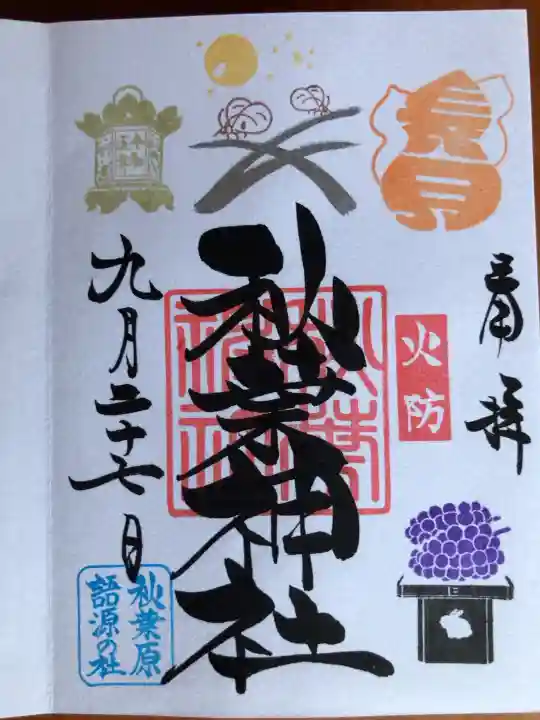 長月
奉拝
火防
秋葉神社
秋葉神社
九月二十七日
秋葉原
語源の社